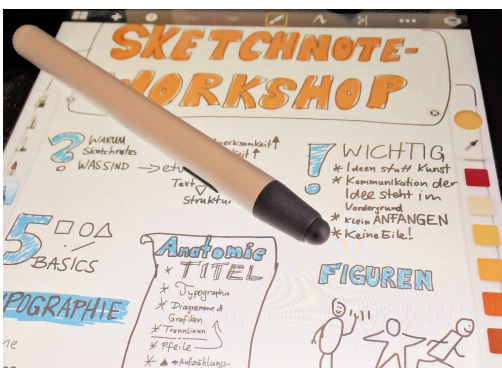 SKETCHNOTE-
WORKSHOP
? WARUM
Sketchnotes
WAS SIND
Text
Struktur
! WICHTIG
* Ideen statt Kunst
* Kommunikation der
Idee steht im
Vordergrund
* klein ANFANGEN
* Keine Eile!
5 BASICS
Anatomie
* TITEL
* Typographie
* Diagramme &
Grafiken
* Trennlinien
* Pfeile
* ▲ → Aufzählungs-
FIGUREN
YPOGRAPHIE